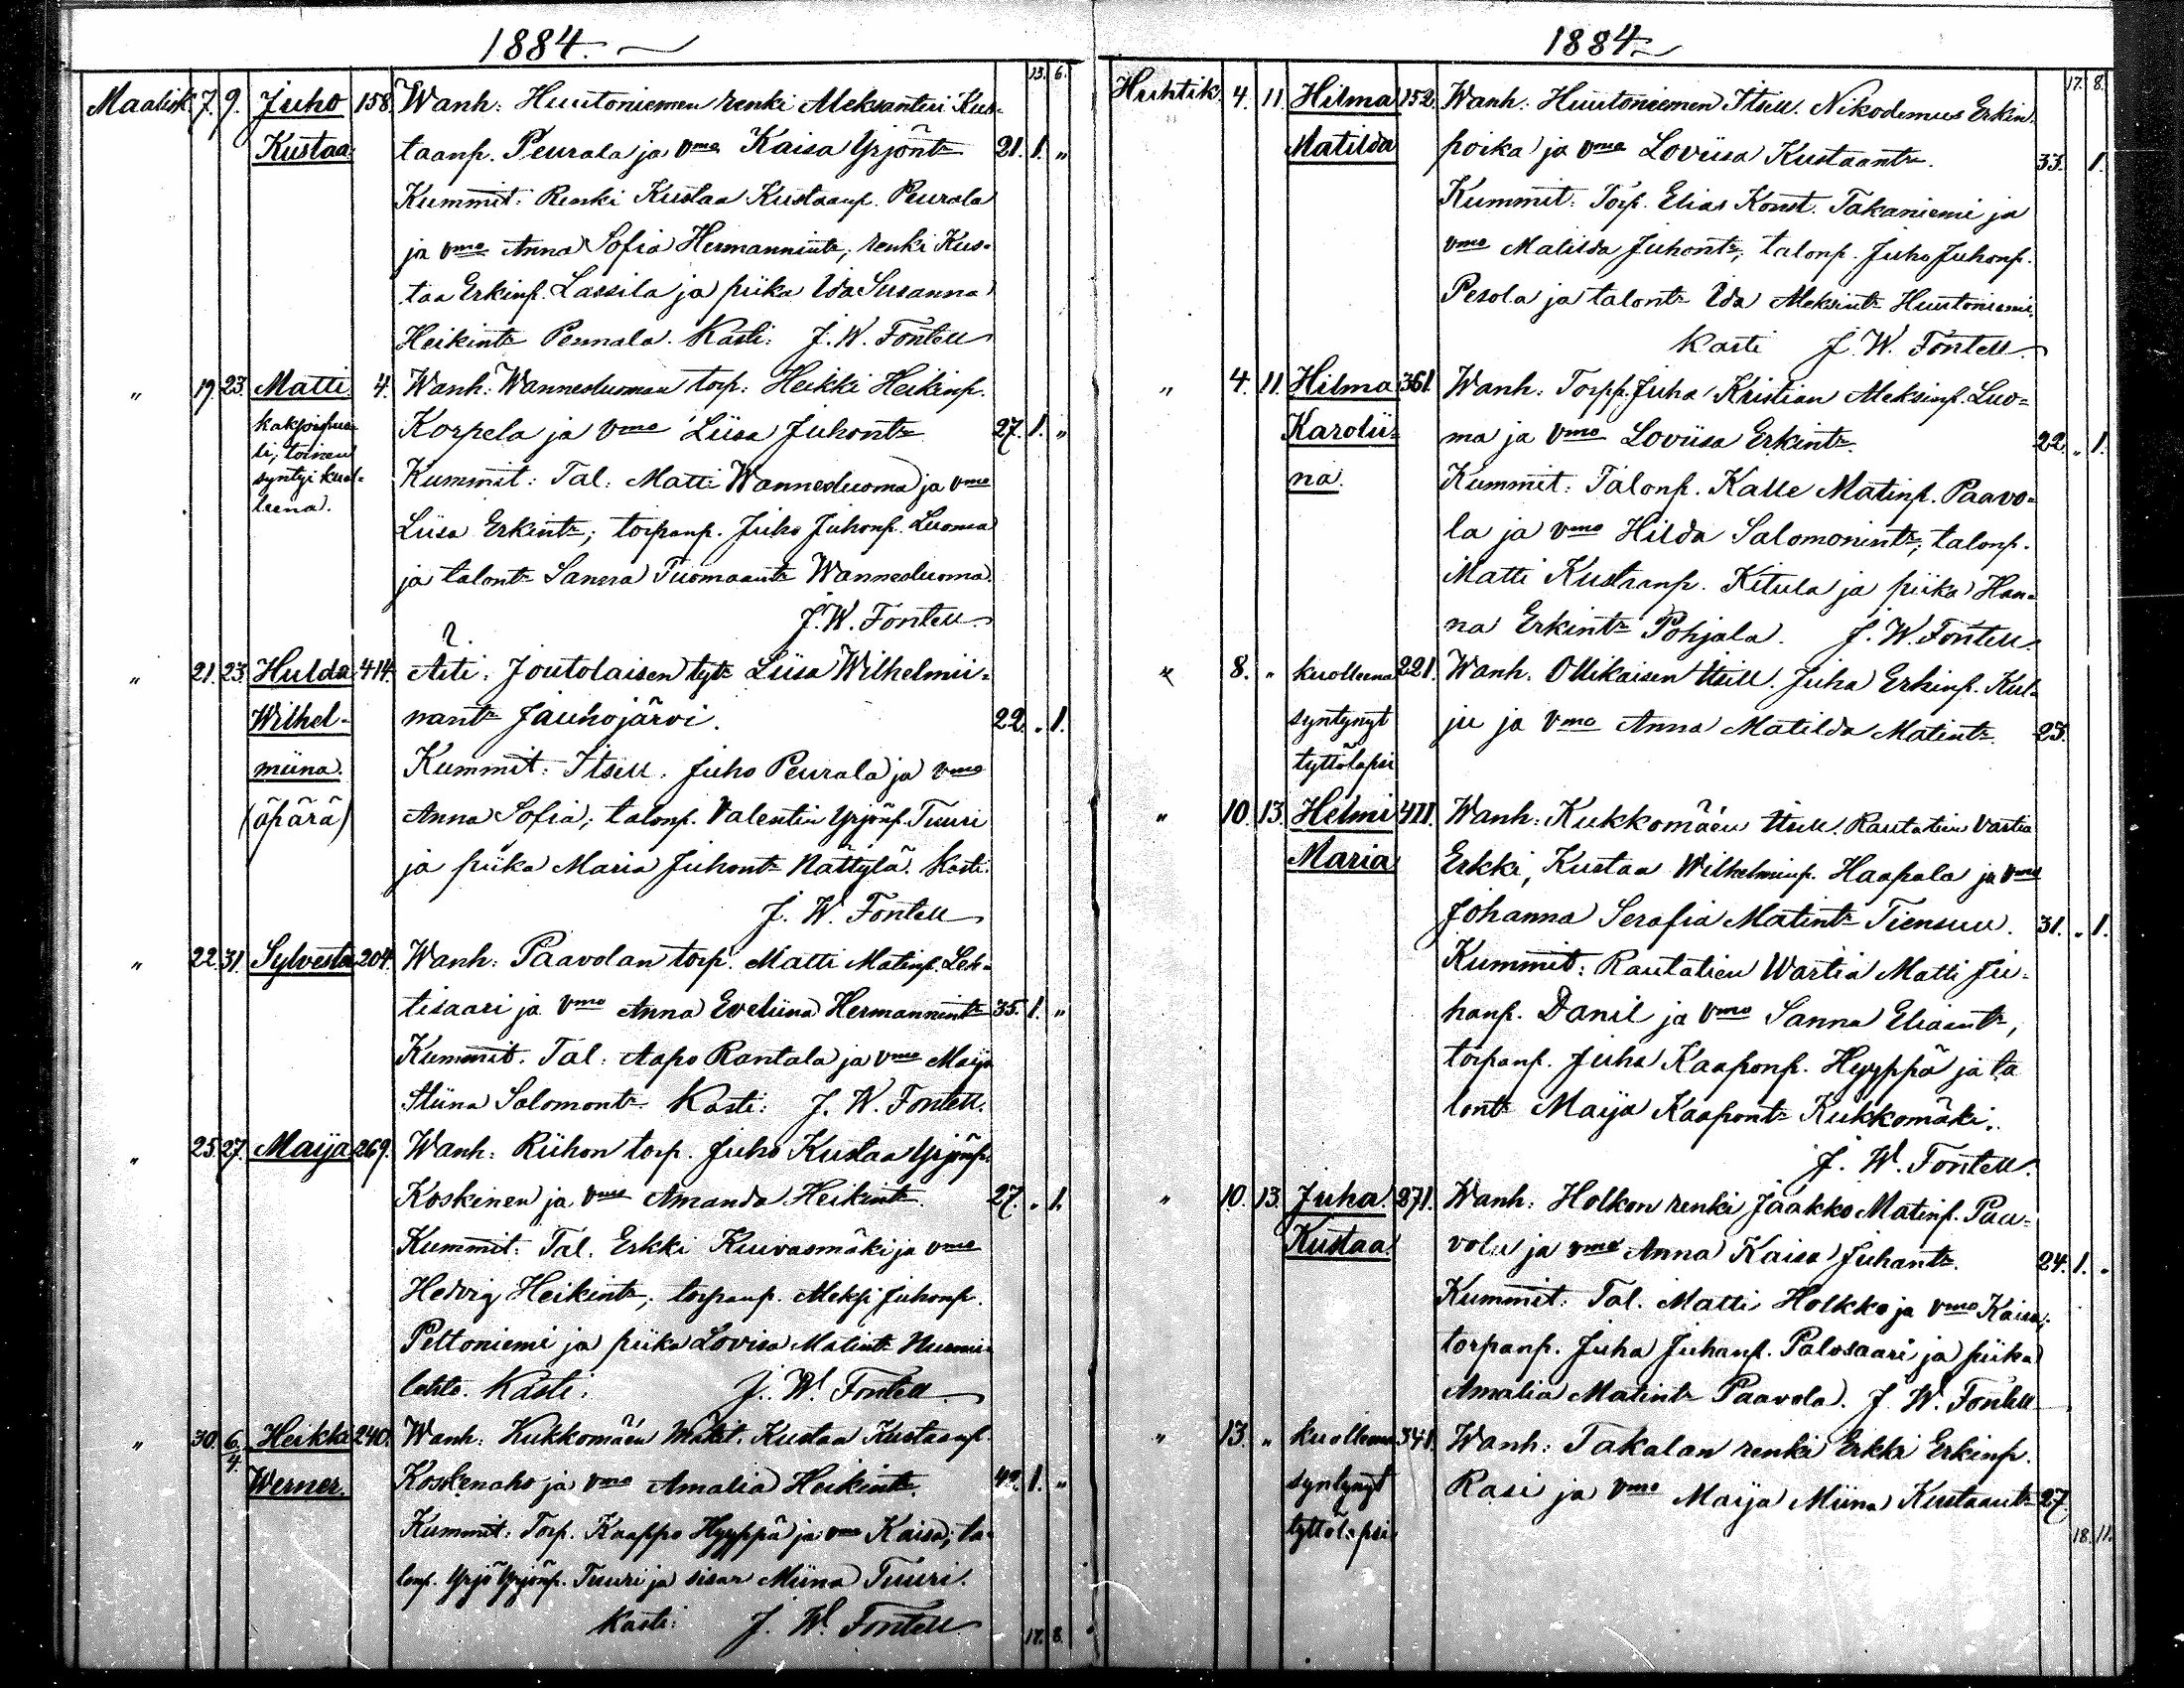 1884.
13. 6.
Maalisk. 7. 9. Juho 158. Wanh: Huutoniemen renki Aleksanteri Kus-
Kustaa. taanp. Peurala ja vmo Kaisa Yrjöntr 21. 1. "
Kummit: Renki Kustaa Kustaanp. Peurala
ja vmo Anna Sofia Hermannintr, renki Kus-
taa Erkinp. Lassila ja piika Ida Susanna
Heikintr Pennala. Kasti: J. W. Fontell
" 19. 23. Matti 4. Wanh: Wannesluoman torp: Heikki Heikinp.
kaksipuo- Korpela ja vmo Liisa Juhontr 27. 1. "
li; toinen
syntyi kuol- Kummit: Tal: Matti Wannesluoma ja vmo
leena. Liisa Erkintr; torpanp. Juho Juhonp. Luoma
ja talontr Sanna Tuomaantr Wannesluoma.
J. W. Fontell
" 21. 23. Hulda 414. Äiti: Joutolaisen tytr Liisa Wilhelmii-
Wilhel- nantr Jauhojärvi. 22. " 1.
miina. Kummit: Itsell. Juho Peurala ja vmo
(äpärä) Anna Sofia; talonp. Valentin Yrjönp. Tuuri
ja piika Maria Juhontr Nättylä. Kasti:
J. W. Fontell
" 22. 31. Sylvester 204. Wanh: Paavolan torp. Matti Matinp. Leh-
tisaari ja vmo Anna Eveliina Hermannintr 35. 1. "
Kummit. Tal: Aapo Rantala ja vmo Maija
Stiina Salomontr. Kasti: J. W. Fontell.
" 25. 27. Maija 269. Wanh: Riihon torp. Juho Kustaa Yrjönp.
Koskinen ja vmo Amanda Heikintr. 27. " 1.
Kummit: Tal. Erkki Kuivasmäki ja vmo
Hedvig Heikintr; torpanp. Aleksi Juhonp.
Peltoniemi ja piika Lovisa Matintr Nurmi-
lehto. Kasti: J. W. Fontell
" 30. 6/4. Heikki 240. Wanh: Kukkomäen Kustaa Kustaanp.
Werner. Koskenaho ja vmo Amalia Heikintr. 42. 1. "
Kummit: Torp. Kaappo Hyyppä ja vmo Kaisa; ta-
lonp. Yrjö Yrjönp. Tuuri ja sisar Miina Tuuri.
Kasti: J. W. Fontell
17. 8.
1884
17. 8.
Huhtik. 4. 11. Hilma 152. Wanh: Huutoniemen Itsell. Nikodemus Erkin
Matilda poika ja vmo Loviisa Kustaantr. 33. 1.
Kummit: Torp. Elias Konst. Takaniemi ja
vmo Matilda Juhontr; talonp. Juho Juhonp.
Pesola ja talontr Ida Aleksintr Huutoniemi.
Kasti J. W. Fontell.
" 4. 11. Hilma 361. Wanh: Torpp. Juha Kristian Aleksinp. Luo-
Karolii- ma ja vmo Loviisa Erkintr. 22. " 1.
na. Kummit: Talonp. Kalle Matinp. Paavo-
la ja vmo Hilda Salomonintr; talonp.
Matti Kustaanp. Kitula ja piika Han-
na Erkintr Pohjala. J. W. Fontell.
" 8. " kuolleena 221. Wanh. Ollikaisen Itsell. Juha Erkinp. Kul-
syntynyt ju ja vmo Anna Matilda Matintr. 25.
tyttölapsi
" 10. 13. Helmi 411. Wanh: Kukkomäen Itsell. Rautatien Vartia
Maria Erkki, Kustaa Wilhelminp. Haapala ja vmo
Johanna Serafia Matintr Tiensuu. 31. " 1.
Kummit: Rautatien Wartia Matti Ju-
hanp. Danil ja vmo Sanna Eliaantr,
torpanp. Juha Kaaponp. Hyyppä ja ta
lontr Maija Kaapontr Kukkomäki.
J. W. Fontell.
" 10. 13. Juha 271. Wanh: Holkon renki Jaakko Matinp. Paa-
Kustaa. vola ja vmo Anna Kaisa Juhantr. 24. 1. "
Kummit: Tal. Matti Holkko ja vmo Kaisa;
torpanp. Juha Juhanp. Palosaari ja piika
Amalia Matintr Paavola. J. W. Fontell
" 13. " kuolleena 341. Wanh: Takalan renki Erkki Erkinp.
syntynyt Rasi ja vmo Maija Miina Kustaantr 27
tyttölapsi
18. 11.